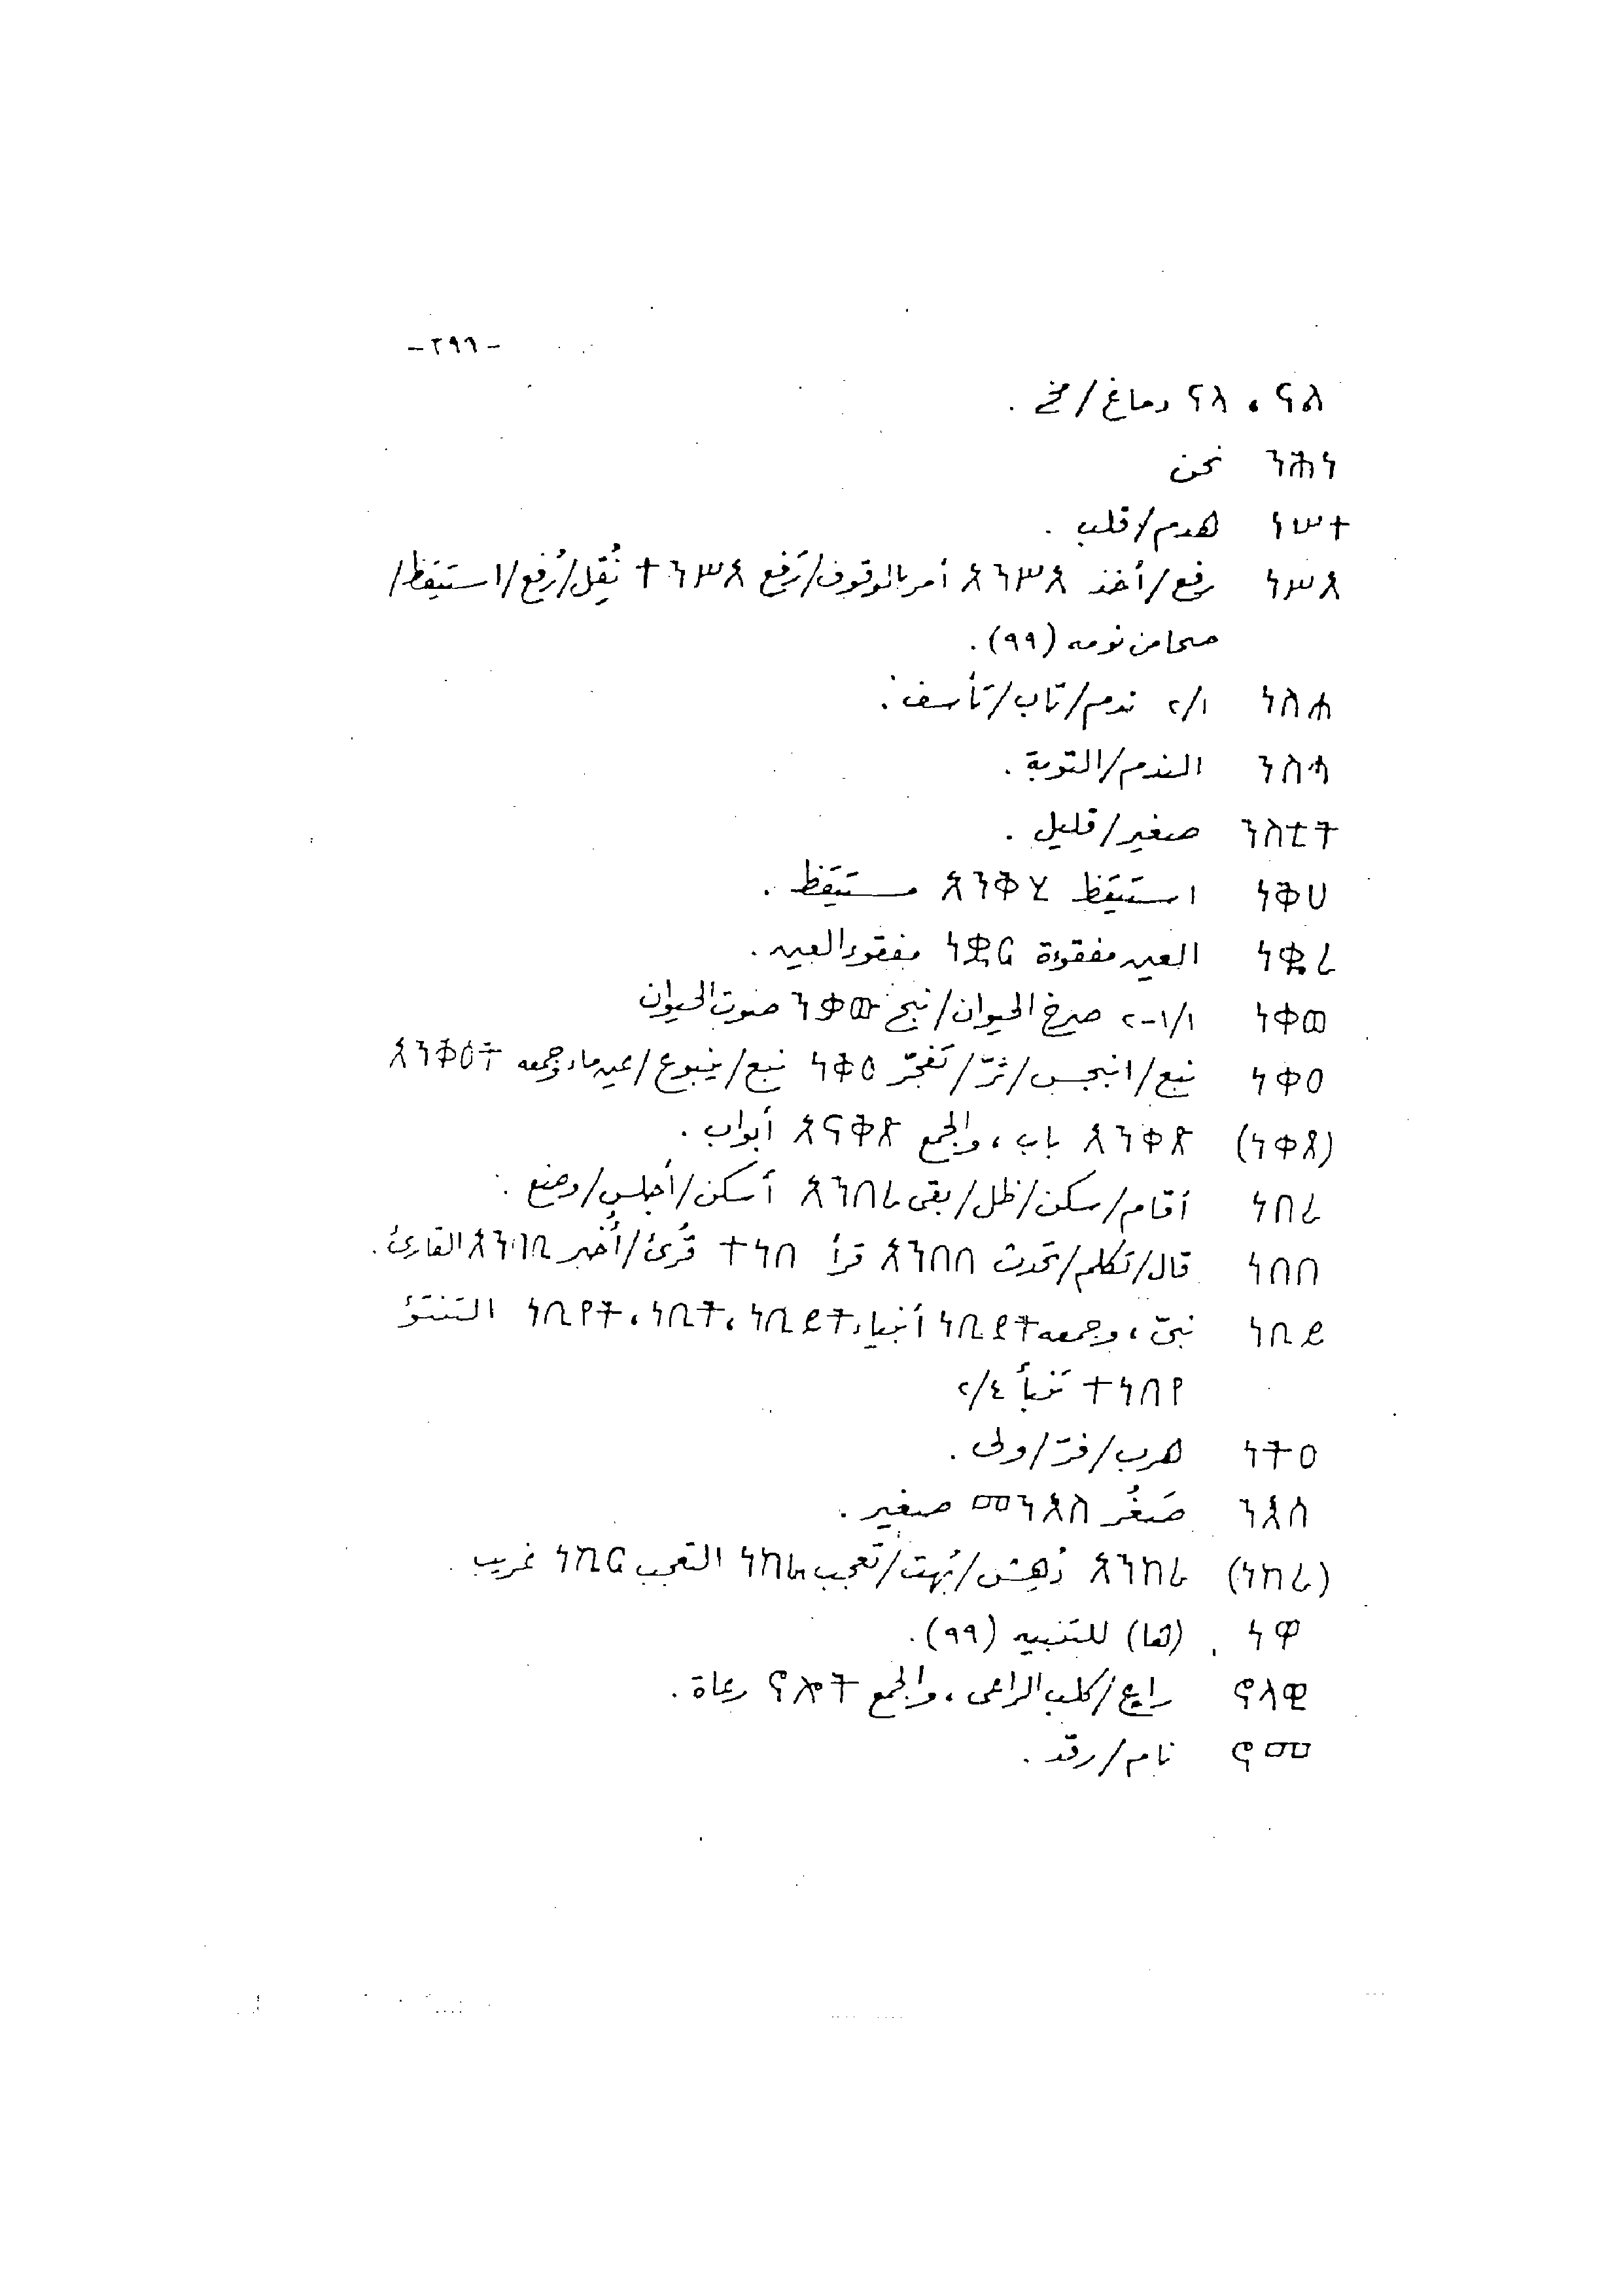 -٢٩٦-
ናላ ، ናላ دماغ/مخ .
ንሕነ نحن
ነሥተ هدم/قلب .
ነሥአ رفع/أخذ አንሥአ أمر بالوقوف/رَفع ተንሥአ نُقِل/رُفع/استيَقظ/
صحا من نومه (٩٩).
ነስሐ ١/٢ ندم/تاب/تأسف .
ንስሐ الندم/التوبة .
ንስቲት صغير/قليل .
ነቅሀ استَيَقظ مستَيَقِظ .
ነቈረ العين مفقوءة ነቍር مفقوء العين .
ነቀወ ١/١-٢ صرخ الحيوان/نبح ንቃው صوت الحيوان
ነቅዐ نبع/انبجس/ثرّ/تَفجّر ነቅዕ نبع/ينبوع/عين ماء وجمعه አንቅዕት
(ነቀጸ) አንቀጽ باب ، والجمع አናቅጽ أبواب .
ነበረ أقام/سكن/ظل/بقى አንበረ أسكن/أجلس/وضع .
ነበበ قال/تكلم/تحدث አንበበ قرأ ተነበ قُرئ/أُخبر القارئ .
ነቢይ نبىّ ، وجمعه ነቢያት أنبياء التَنبّؤ
ተነበየ تَنبأ ٢/٤
ነትዐ هرب/فرّ/ولى .
ንእሰ صَغُر ንኡስ صغير .
(ነከረ) አንከረ دُهِش/بُهت/تعجب ነከር التعجب ነኪር غريب .
ነዋ (ها) للتنبيه (٩٩).
ኖላዊ راعٍ/كلب الراعى ، والجمع ኖሎት رعاة .
ኖመ نام/رقد .